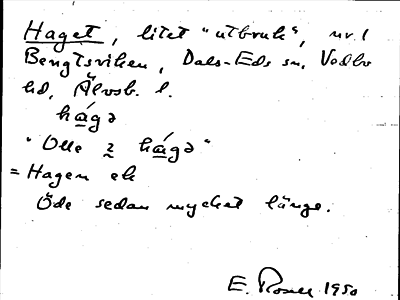 Haget, litet "utbruk", nr. 1
Bengtsviken, Dals-Eds sn, Vedbo
hd, Älvsb. l.
hágə
"Olle i hágə"
= Hagen ek
Öde sedan mycket länge.
E. Rosell 1950